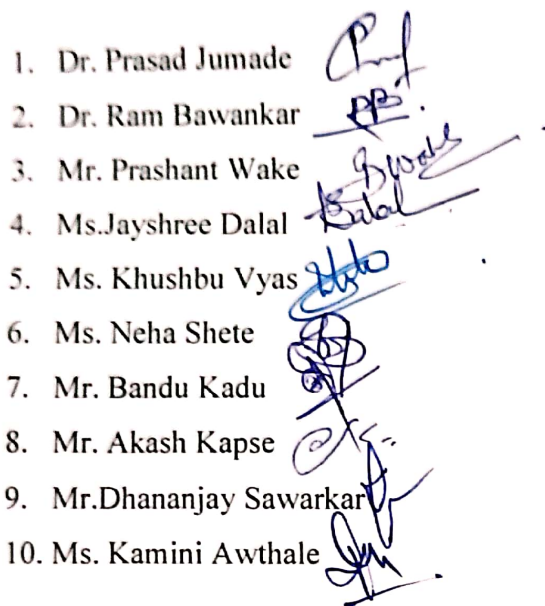 1. Dr. Prasad Jumade
2. Dr. Ram Bawankar
3. Mr. Prashant Wake
4. Ms.Jayshree Dalal
5. Ms. Khushbu Vyas
6. Ms. Neha Shete
7. Mr. Bandu Kadu
8. Mr. Akash Kapse
9. Mr.Dhananjay Sawarkar
10. Ms. Kamini Awthale